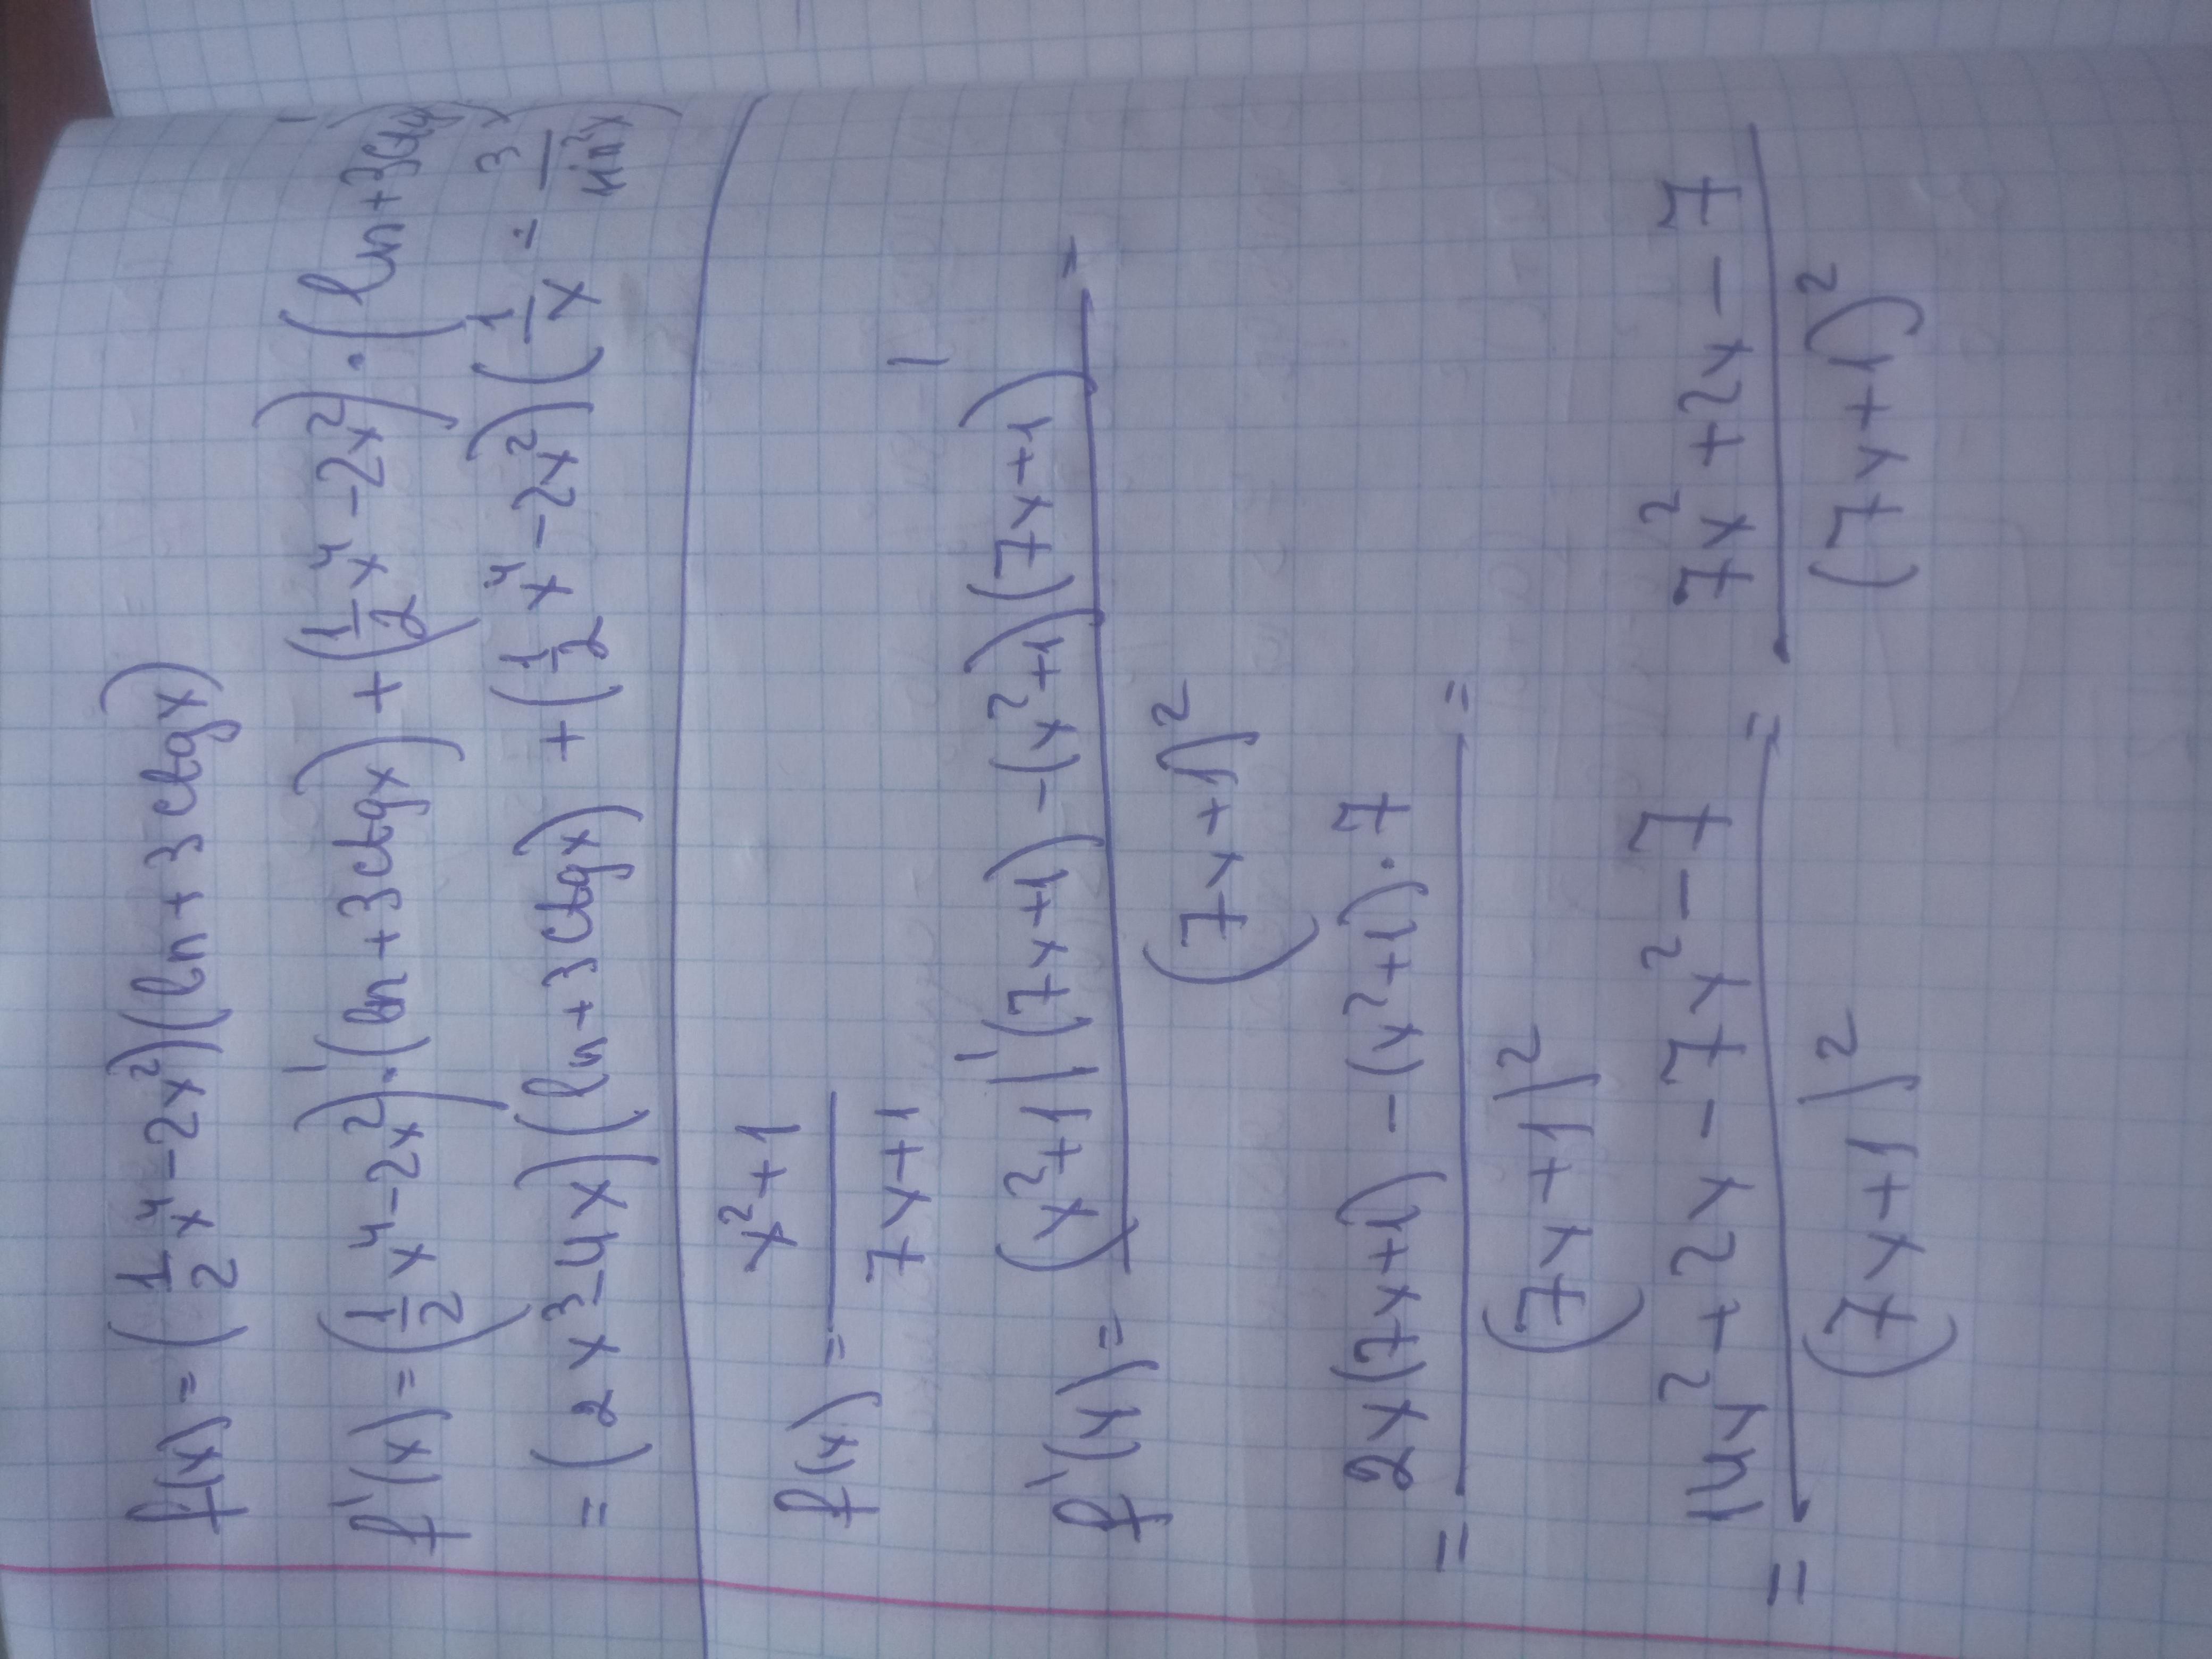 f(x) = (1/2 x⁴ - 2x²)(ln + 3 ctgx)
f'(x) = (1/2 x⁴ - 2x²)' · (ln + 3ctgx) + (1/2 x⁴ - 2x²) · (ln + 3ctgx)'
= (2x³ - 4x)(ln + 3ctgx) + (1/2 x⁴ - 2x²)(1/x - 3/sin²x)
f(x) = x² + 1 / 7x + 1
f'(x) = (x² + 1)' (7x + 1) - (x² + 1)(7x + 1)' / (7x + 1)² =
= 2x(7x + 1) - (x² + 1) · 7 / (7x + 1)² =
= 14x² + 2x - 7x² - 7 / (7x + 1)² = 7x² + 2x - 7 / (7x + 1)²